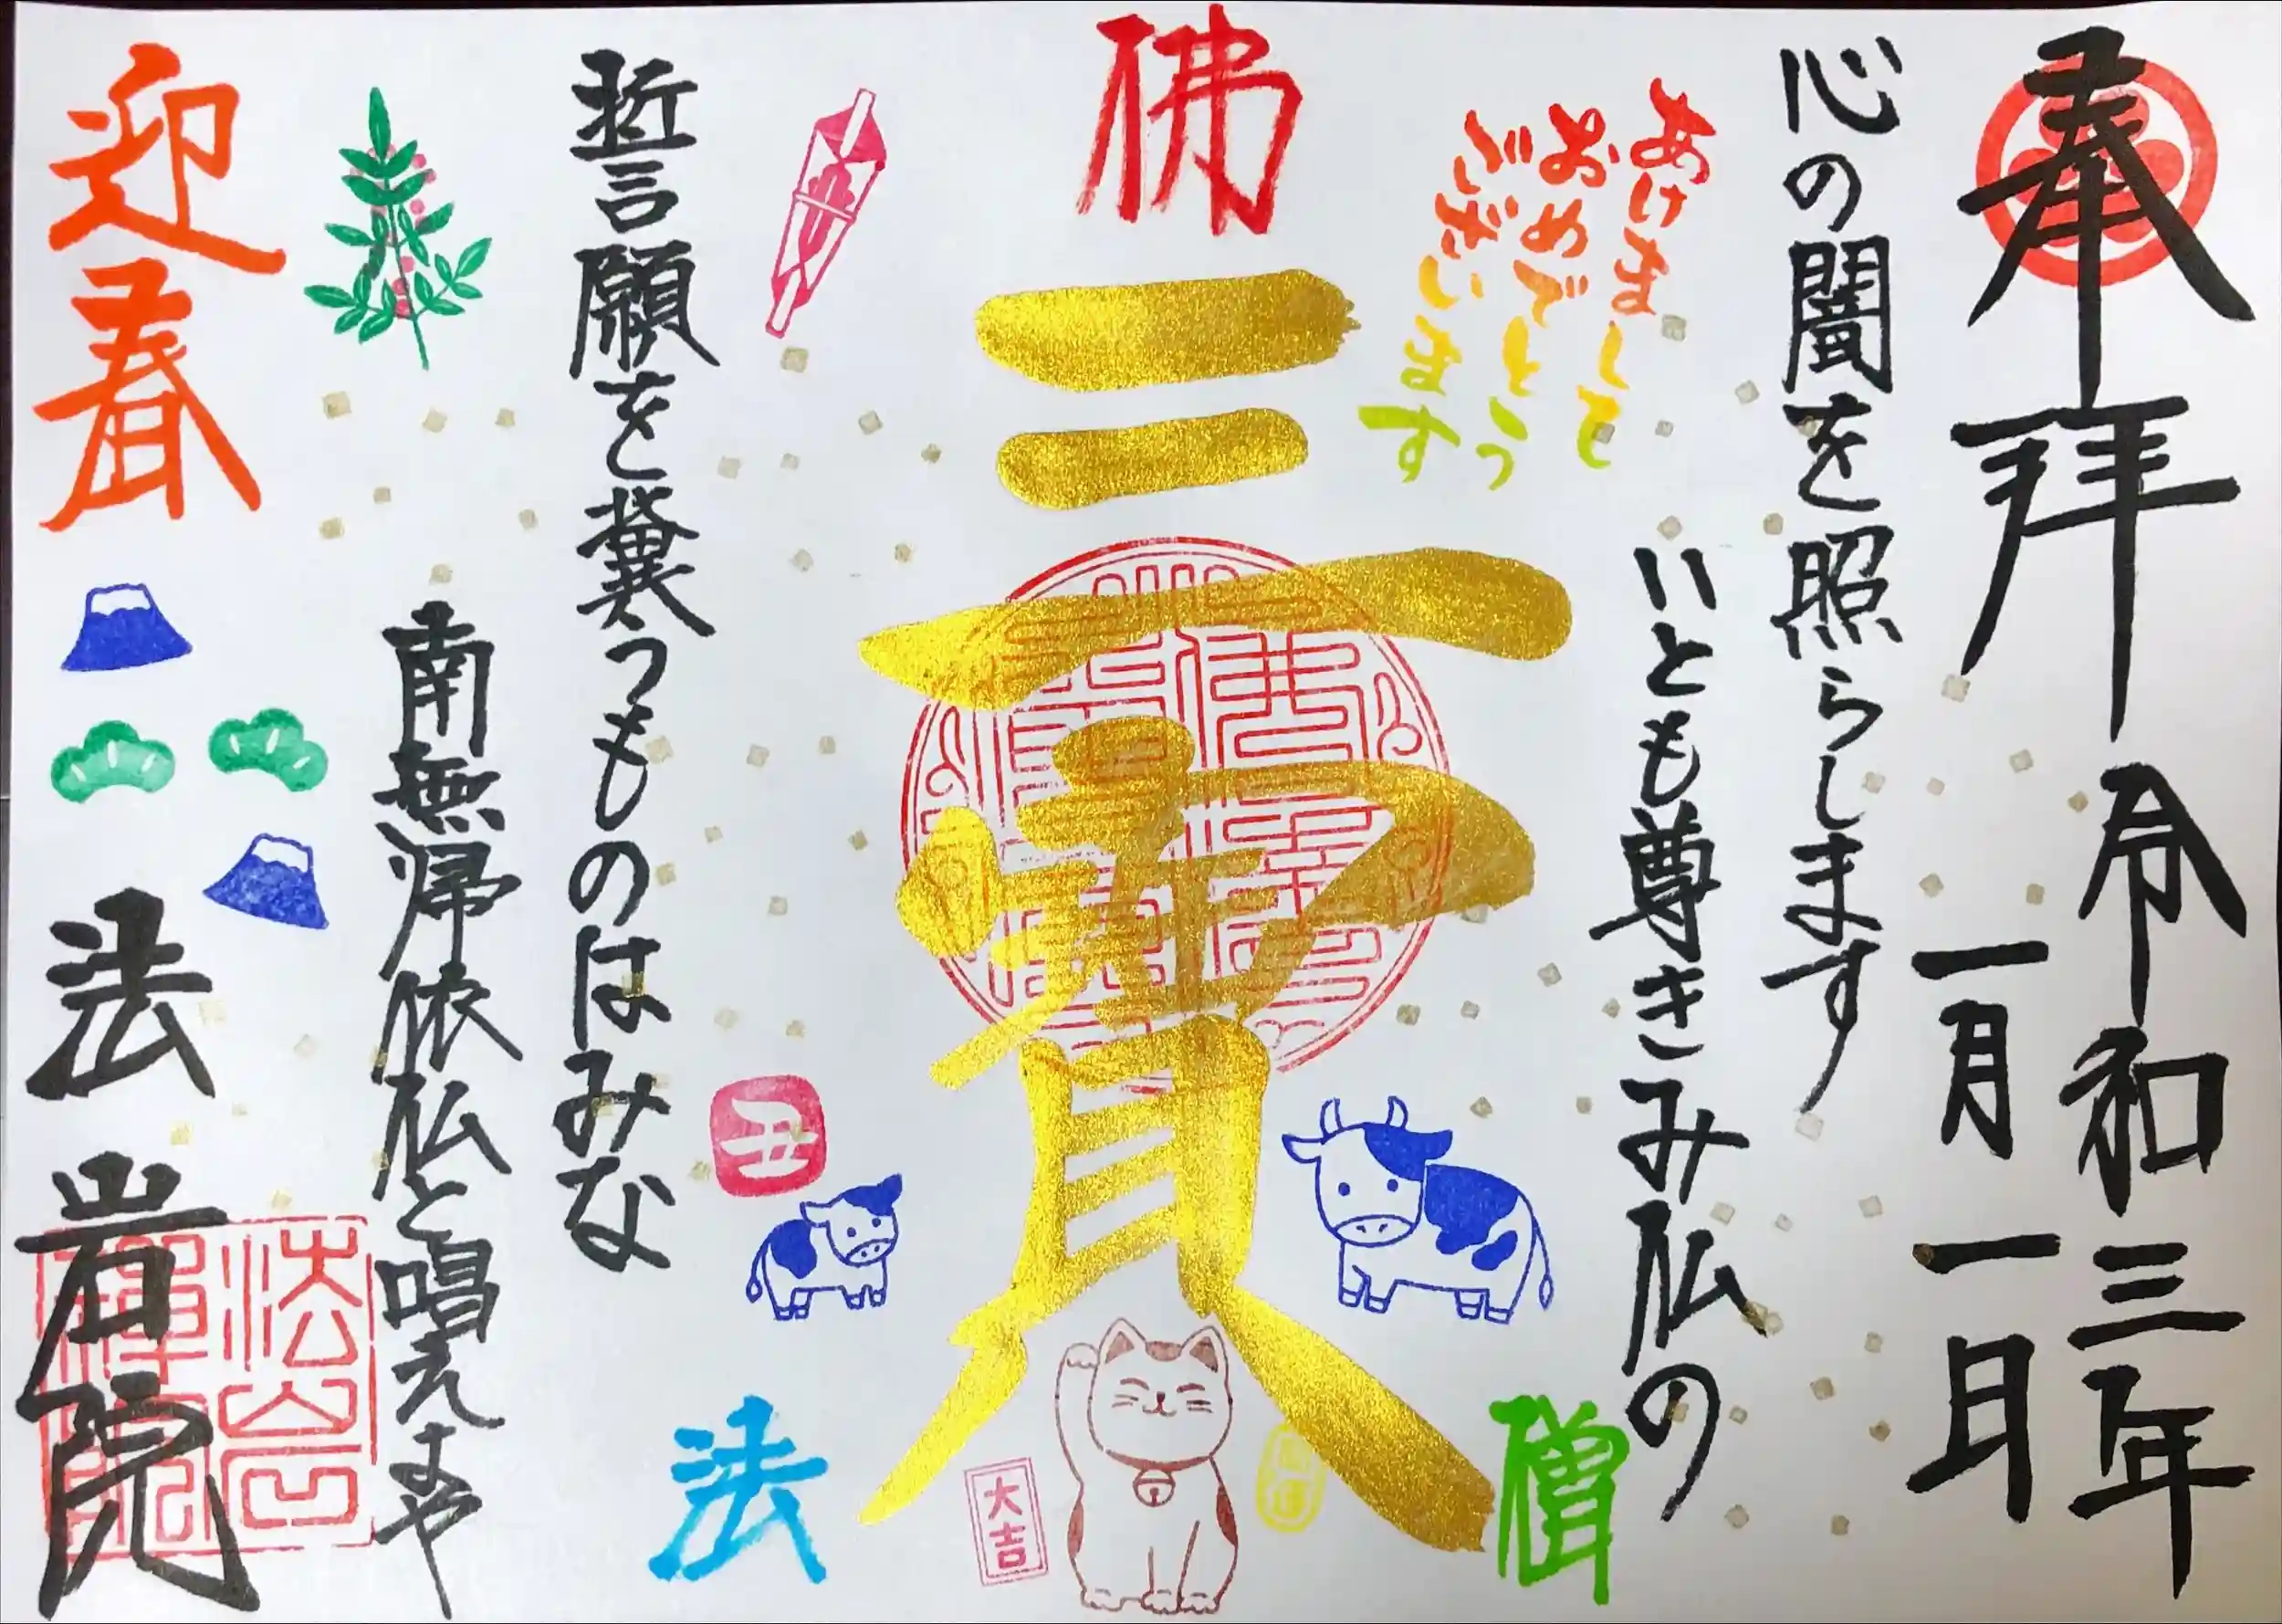 奉拝
令和三年
一月一日
心の闇を照らします
いとも尊きみ仏の
あけまして
おめでとう
ございます
佛
三寳
僧
法
大吉
丑
誓願を冀うものはみな
南無帰依仏と唱えよや
迎春
法岩院